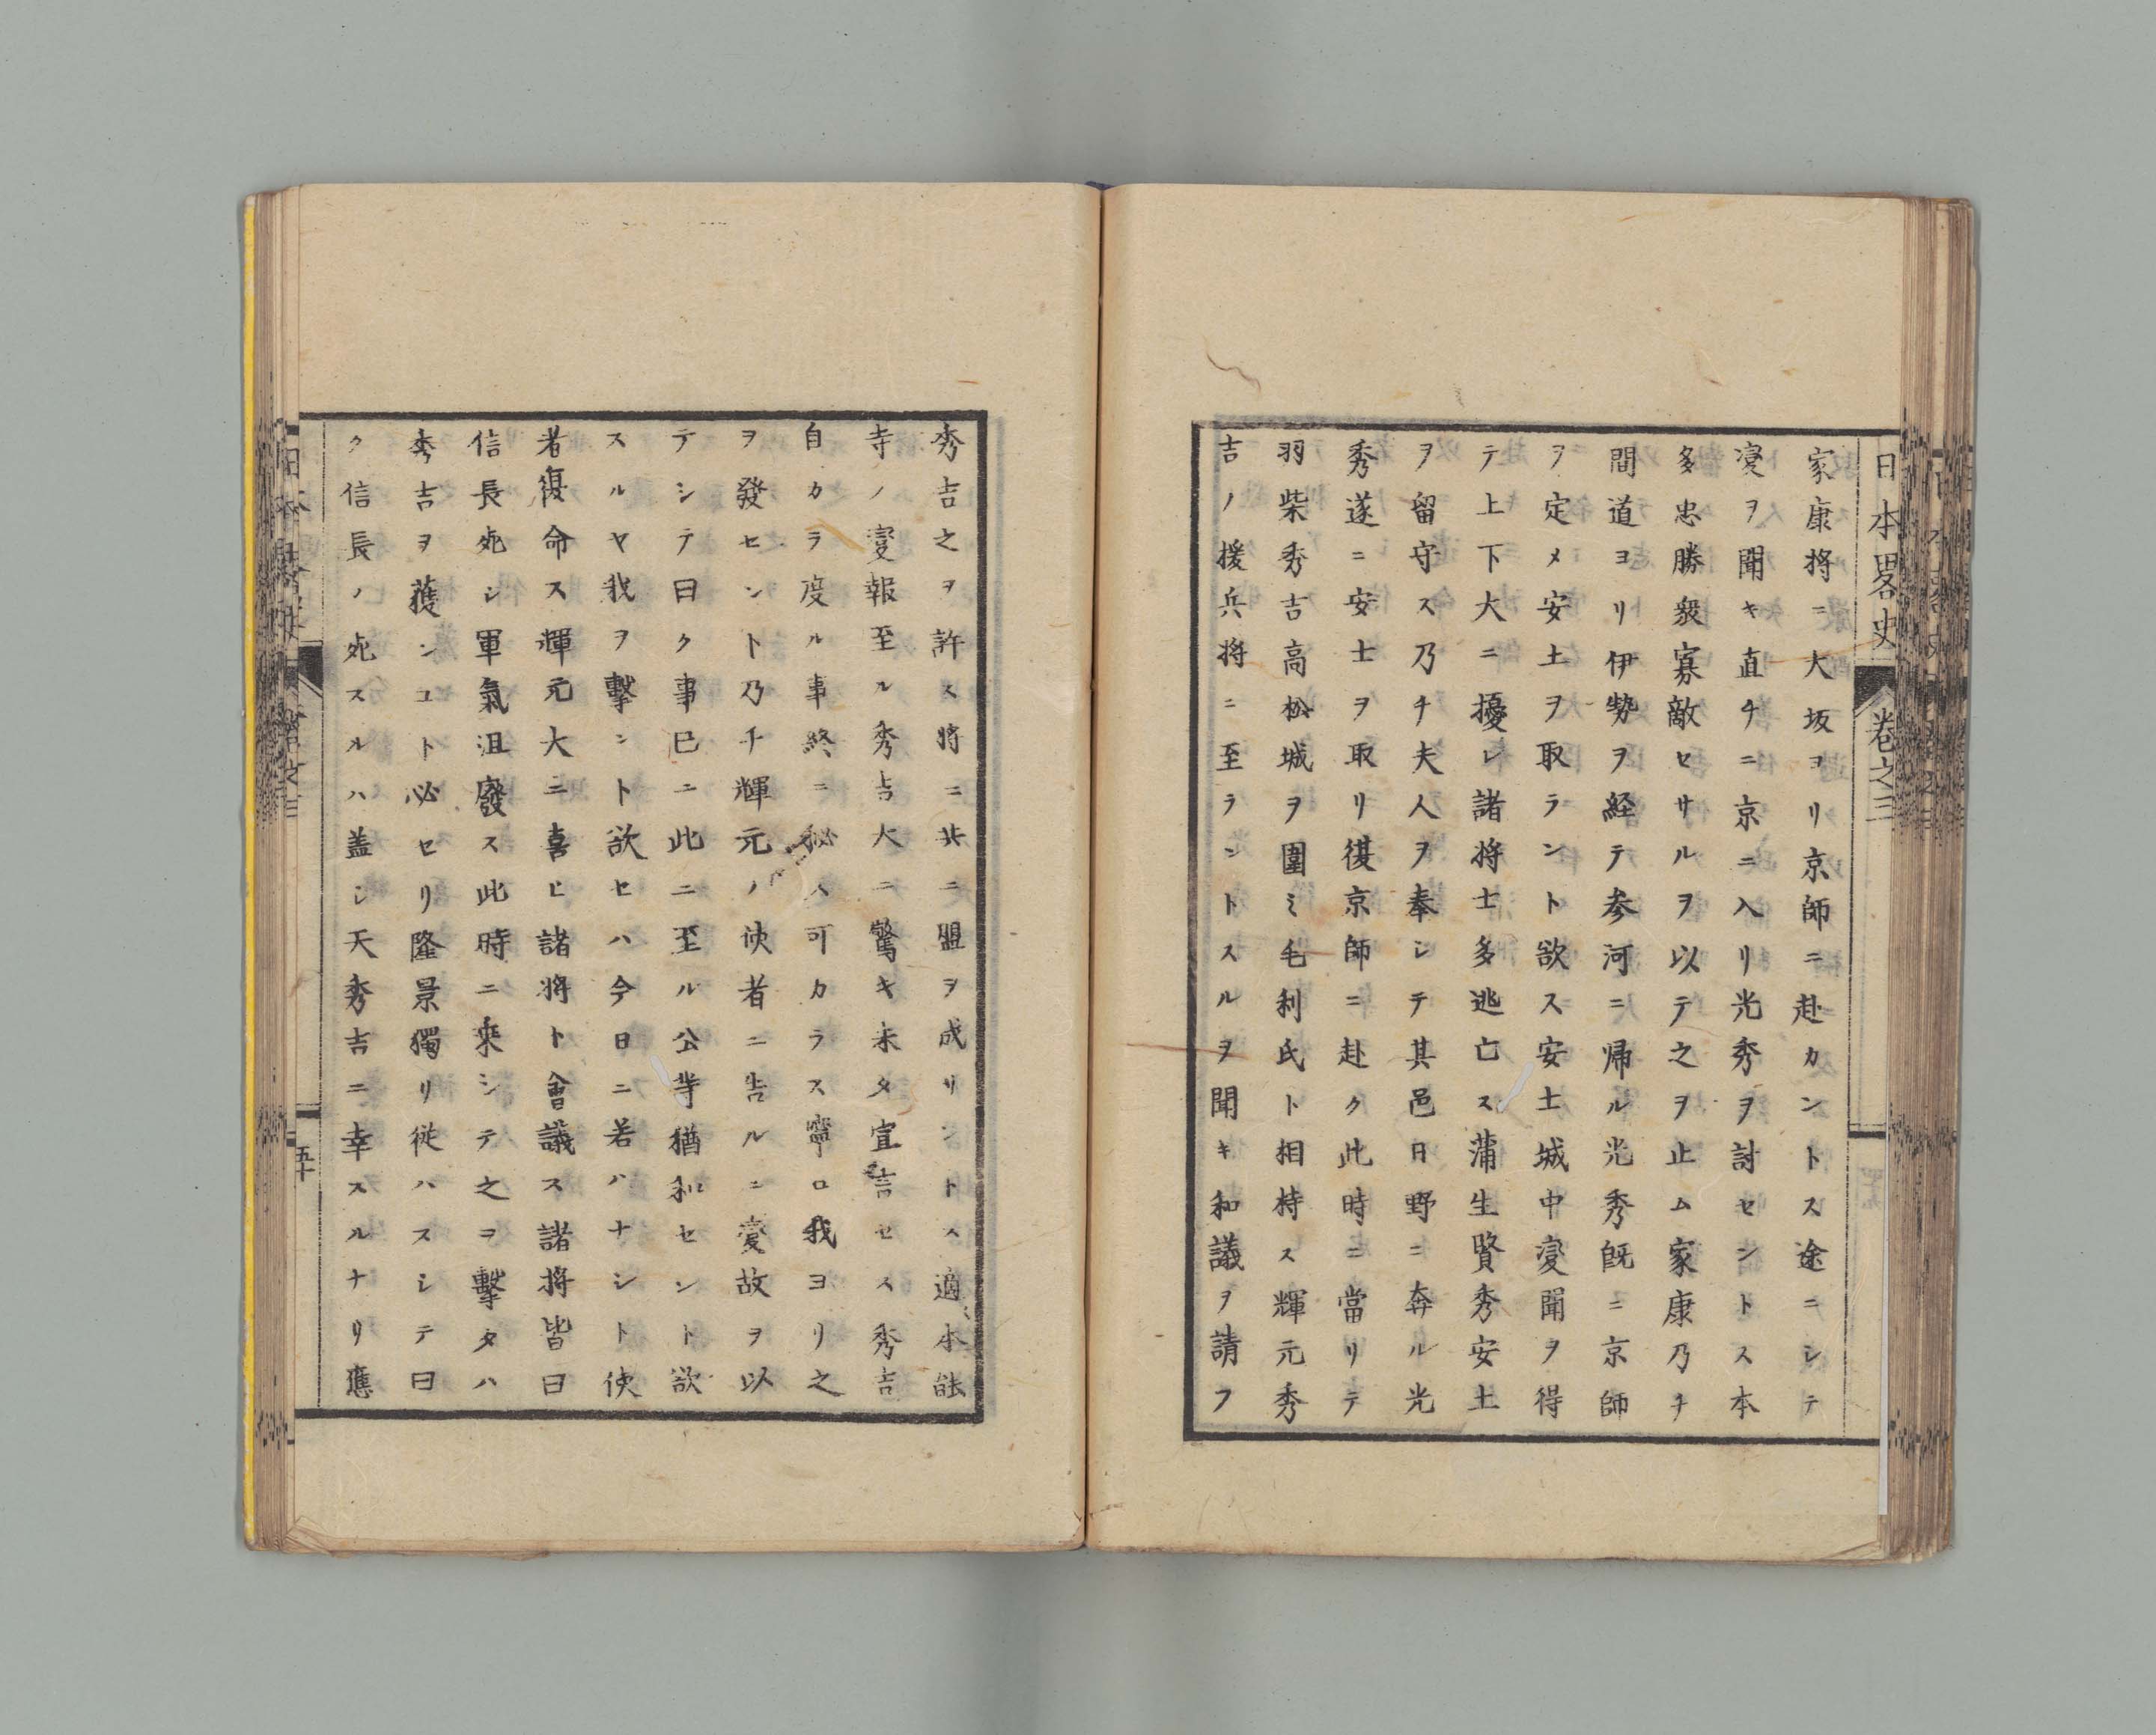 日本畧史 卷之三
家康將ニ大坂ヨリ京師ニ赴カントス途ニシテ
變ヲ聞キ直チニ京ニ入リ光秀ヲ討セントス本
多忠勝衆寡敵セサルヲ以テ之ヲ止ム家康乃チ
間道ヨリ伊勢ヲ経テ参河ニ帰ル光秀既ニ京師
ヲ定メ安土ヲ取ラント欲ス安土城中變聞ヲ得
テ上下大ニ擾レ諸將士多逃亡ス蒲生賢秀安土
ヲ留守ス乃チ夫人ヲ奉シテ其邑日野ニ奔ル光
秀遂ニ安土ヲ取リ復京師ニ赴ク此時ニ當リテ
羽柴秀吉高松城ヲ圍ミ毛利氏ト相持ス輝元秀
吉ノ援兵將ニ至ラントスルヲ聞キ和議ヲ請フ
秀吉之ヲ許ス將ニ共ニ盟ヲ成サントス適本能
寺ノ變報至ル秀吉大ニ驚キ未タ宣言セス秀吉
自カラ度ル事終ニ秘ス可カラス寧ロ我ヨリ之
ヲ發セント乃チ輝元ノ使者ニ告ルニ變故ヲ以
テシテ曰ク事已ニ此ニ至ル公等猶和セント欲
スルヤ我ヲ擊ント欲セハ今日ニ若ハナシト使
者復命ス輝元大ニ喜ヒ諸將ト會議ス諸將皆曰
信長死シ軍氣沮廢ス此時ニ乘シテ之ヲ擊タハ
秀吉ヲ獲ンコト必セリ隆景獨リ從ハスシテ曰
ク信長ノ死スルハ盖シ天秀吉ニ幸スルナリ應
五十